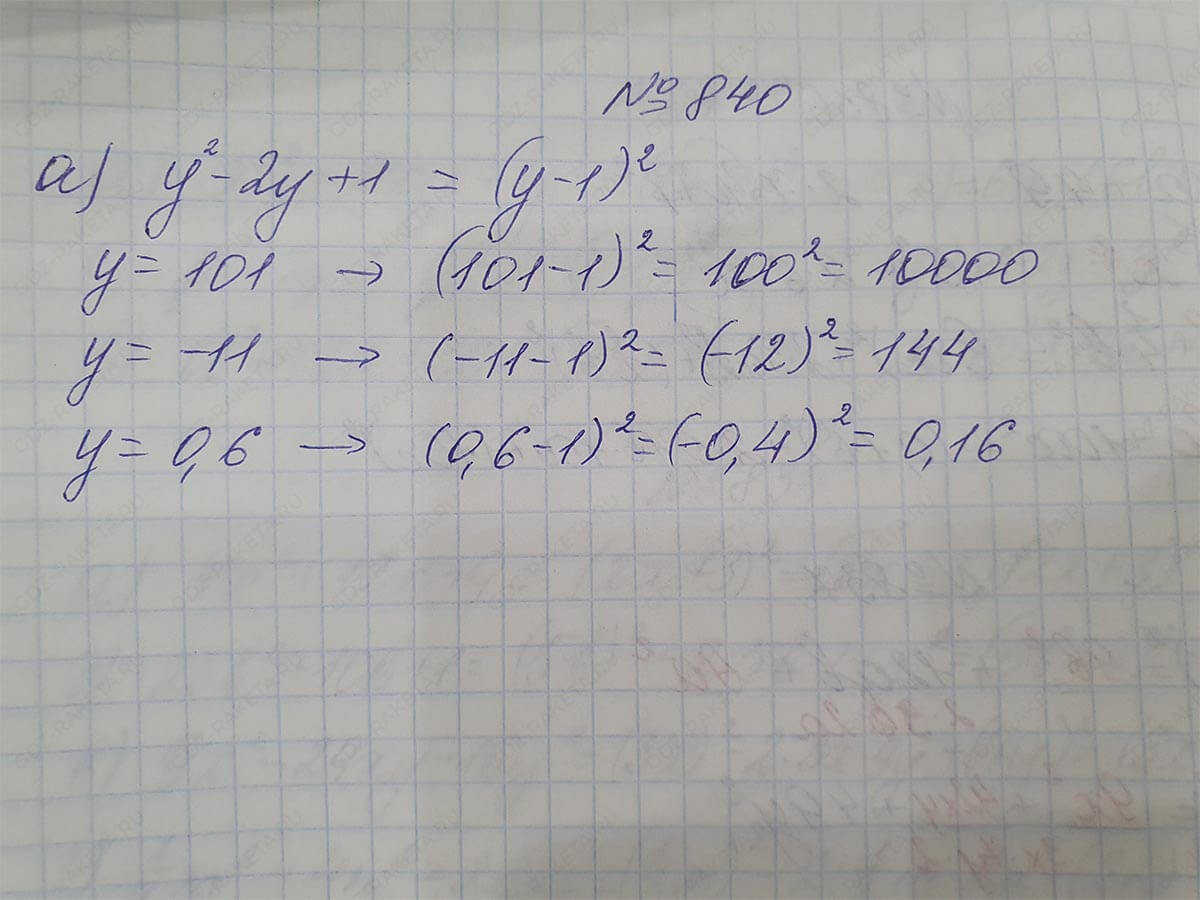 № 840
а) y² - 2y + 1 = (y - 1)²
y = 101 → (101 - 1)² = 100² = 10000
y = -11 → (-11 - 1)² = (-12)² = 144
y = 0,6 → (0,6 - 1)² = (-0,4)² = 0,16